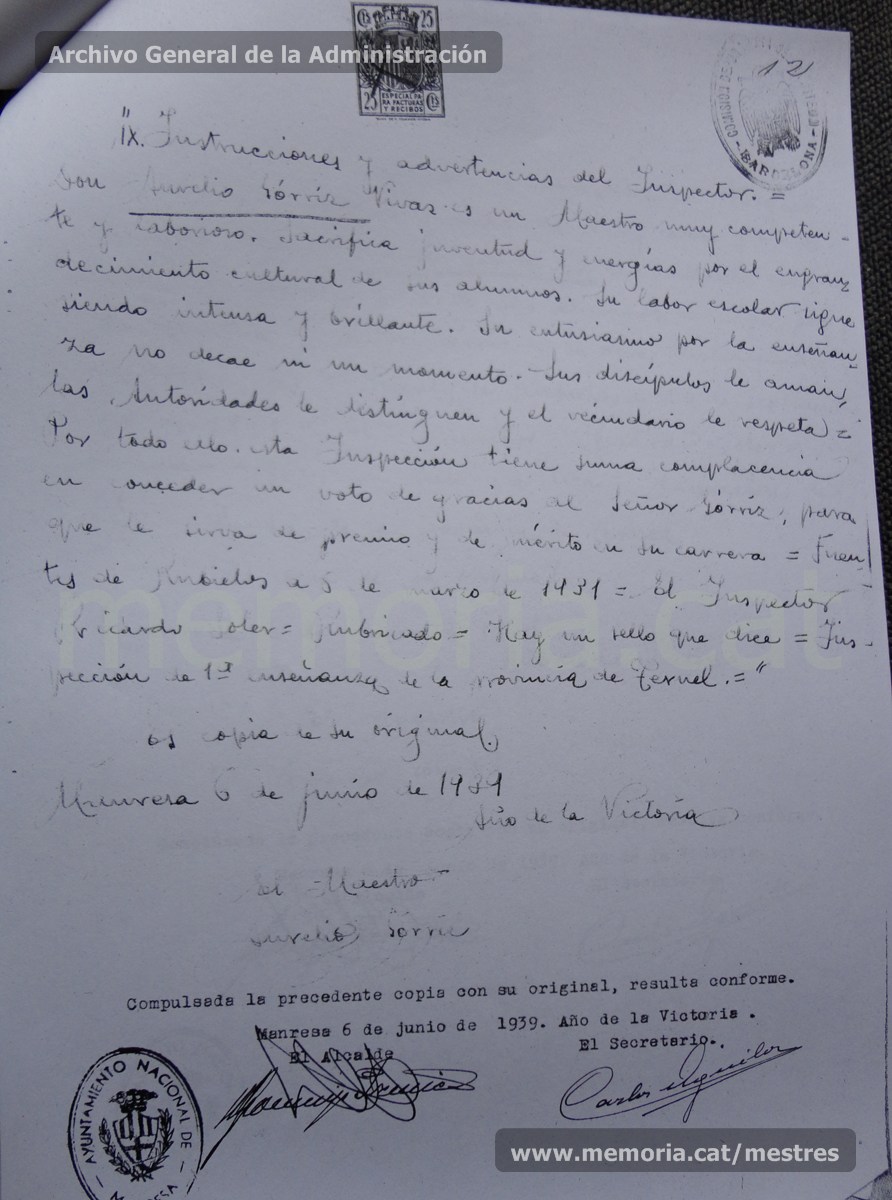 Archivo General de la Administración
Cs 25
25 Cs
ESPECIAL PA
RA FACTURAS
Y RECIBOS
12
BARCELONA
"IX. Instrucciones y advertencias del Inspector. =
Don Aurelio Górriz Vivaz es un Maestro muy competen-
te y laborioso. Sacrifica juventud y energías por el engran
decimiento cultural de sus alumnos. Su labor escolar sigue
siendo intensa y brillante. Su entusiasmo por la enseñan
za no decae ni un momento. - Sus discípulos le aman,
las Autoridades le distinguen y el vecindario le respeta =
Por todo ello esta Inspección tiene suma complacencia
en conceder un voto de gracias al Señor Górriz, para
que le sirva de premio y de mérito en su carrera = Fuen-
tes de Rubielos a 5 de marzo de 1931 = El Inspector
Ricardo Soler = Rubricado = Hay un sello que dice = Ins-
pección de 1ª enseñanza de la provincia de Teruel. = "
es copia de su original.
Manresa 6 de junio de 1939
Año de la Victoria
El Maestro
Aurelio Górriz
Compulsada la precedente copia con su original, resulta conforme.
Manresa 6 de junio de 1939. Año de la Victoria .
El Alcalde
El Secretario.
Carlos Aguilar
AYUNTAMIENTO NACIONAL DE
memoria.cat
www.memoria.cat/mestres